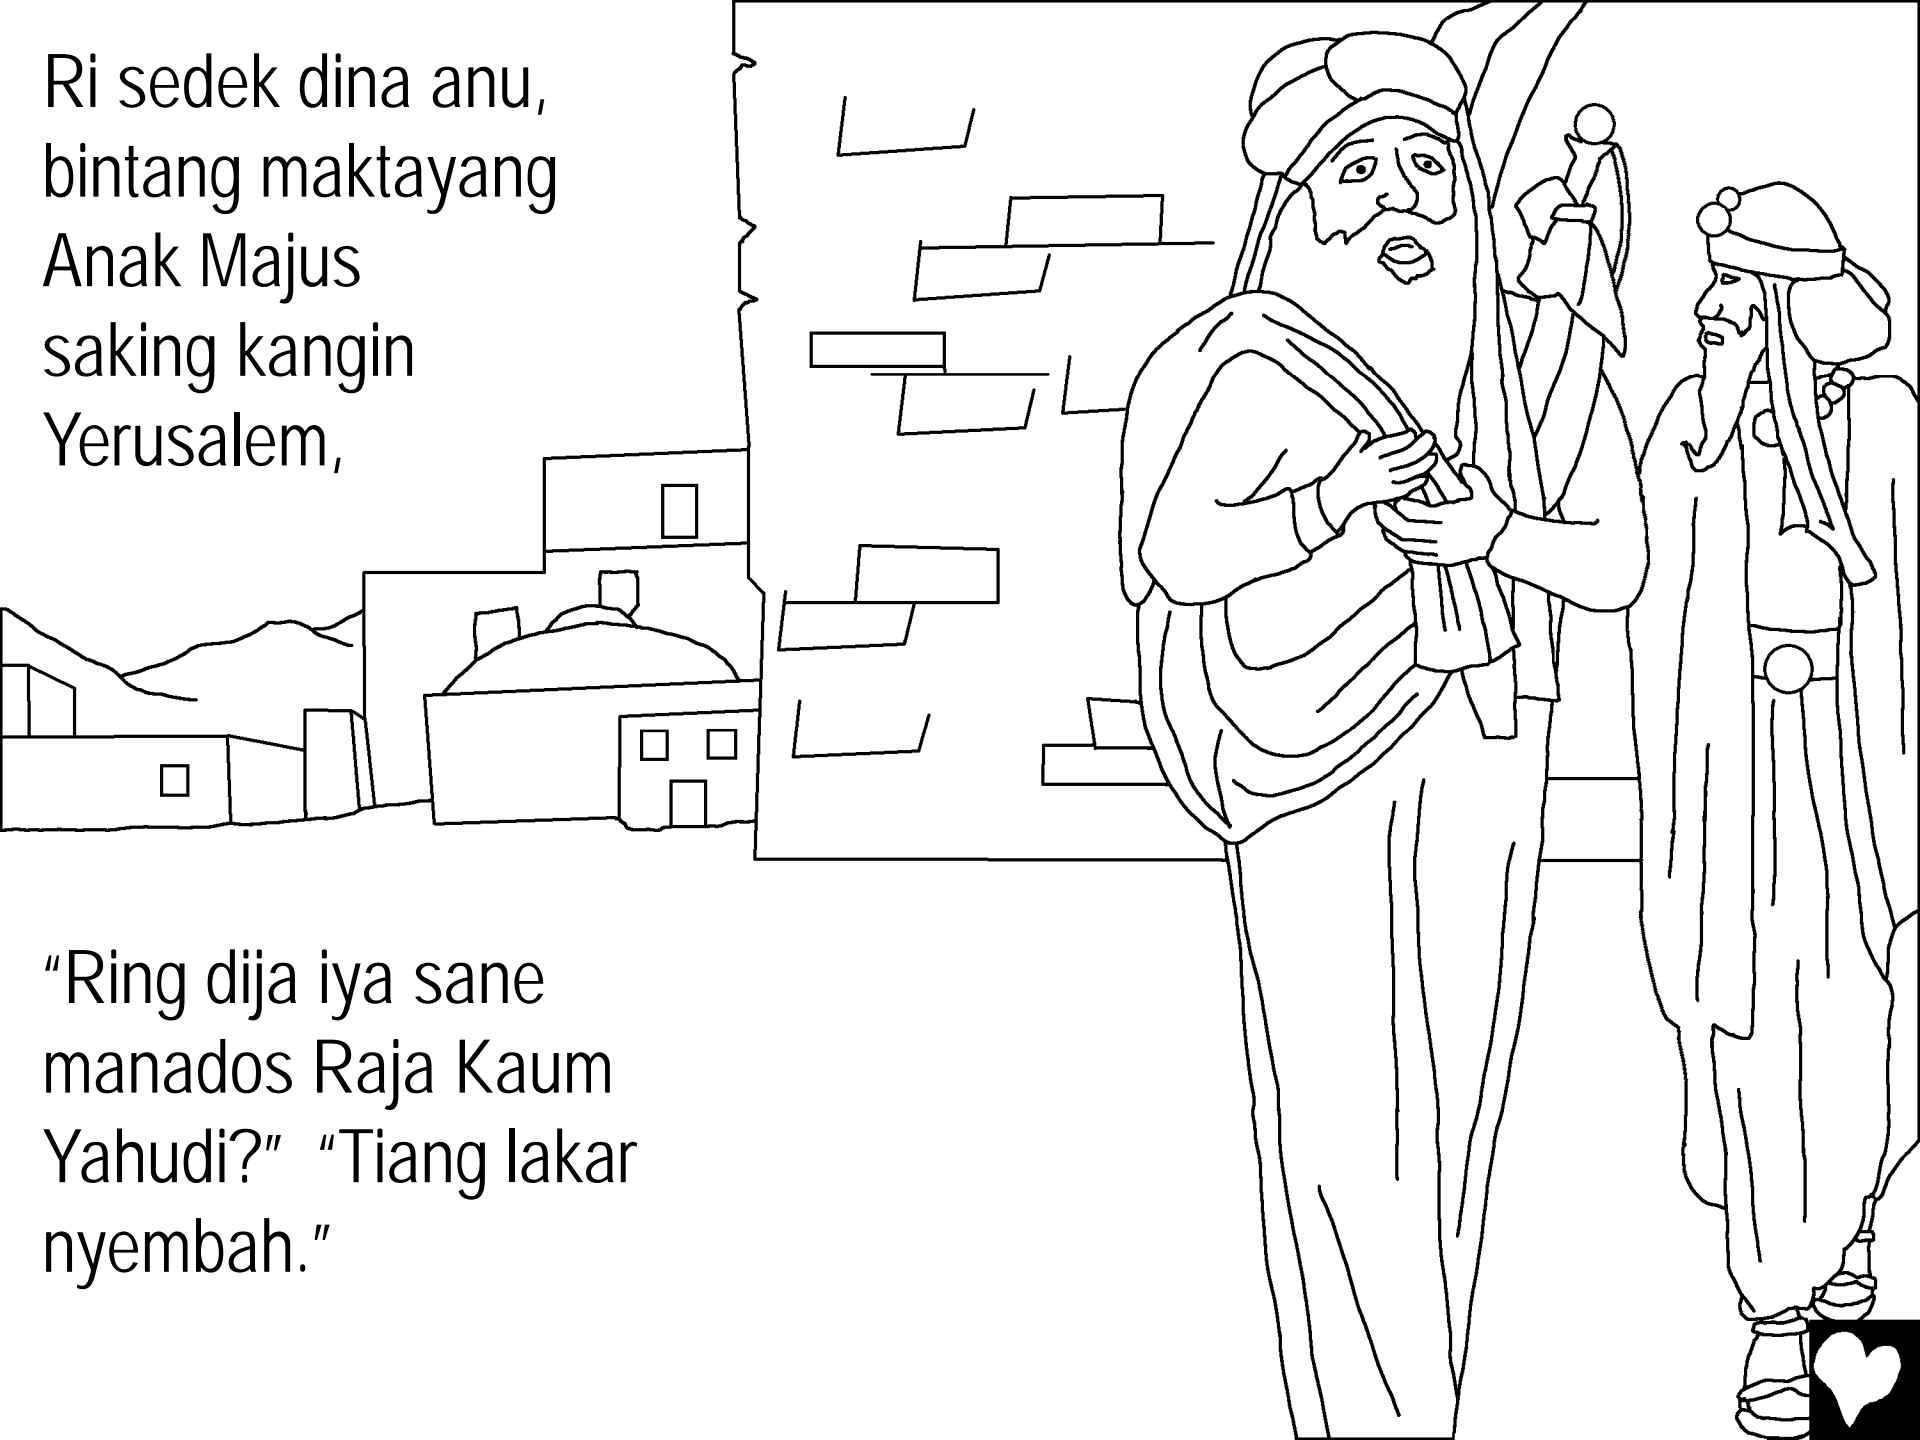 Ri sedek dina anu,
bintang maktayang
Anak Majus
saking kangin
Yerusalem,
“Ring dija iya sane
manados Raja Kaum
Yahudi?”  “Tiang lakar
nyembah.”